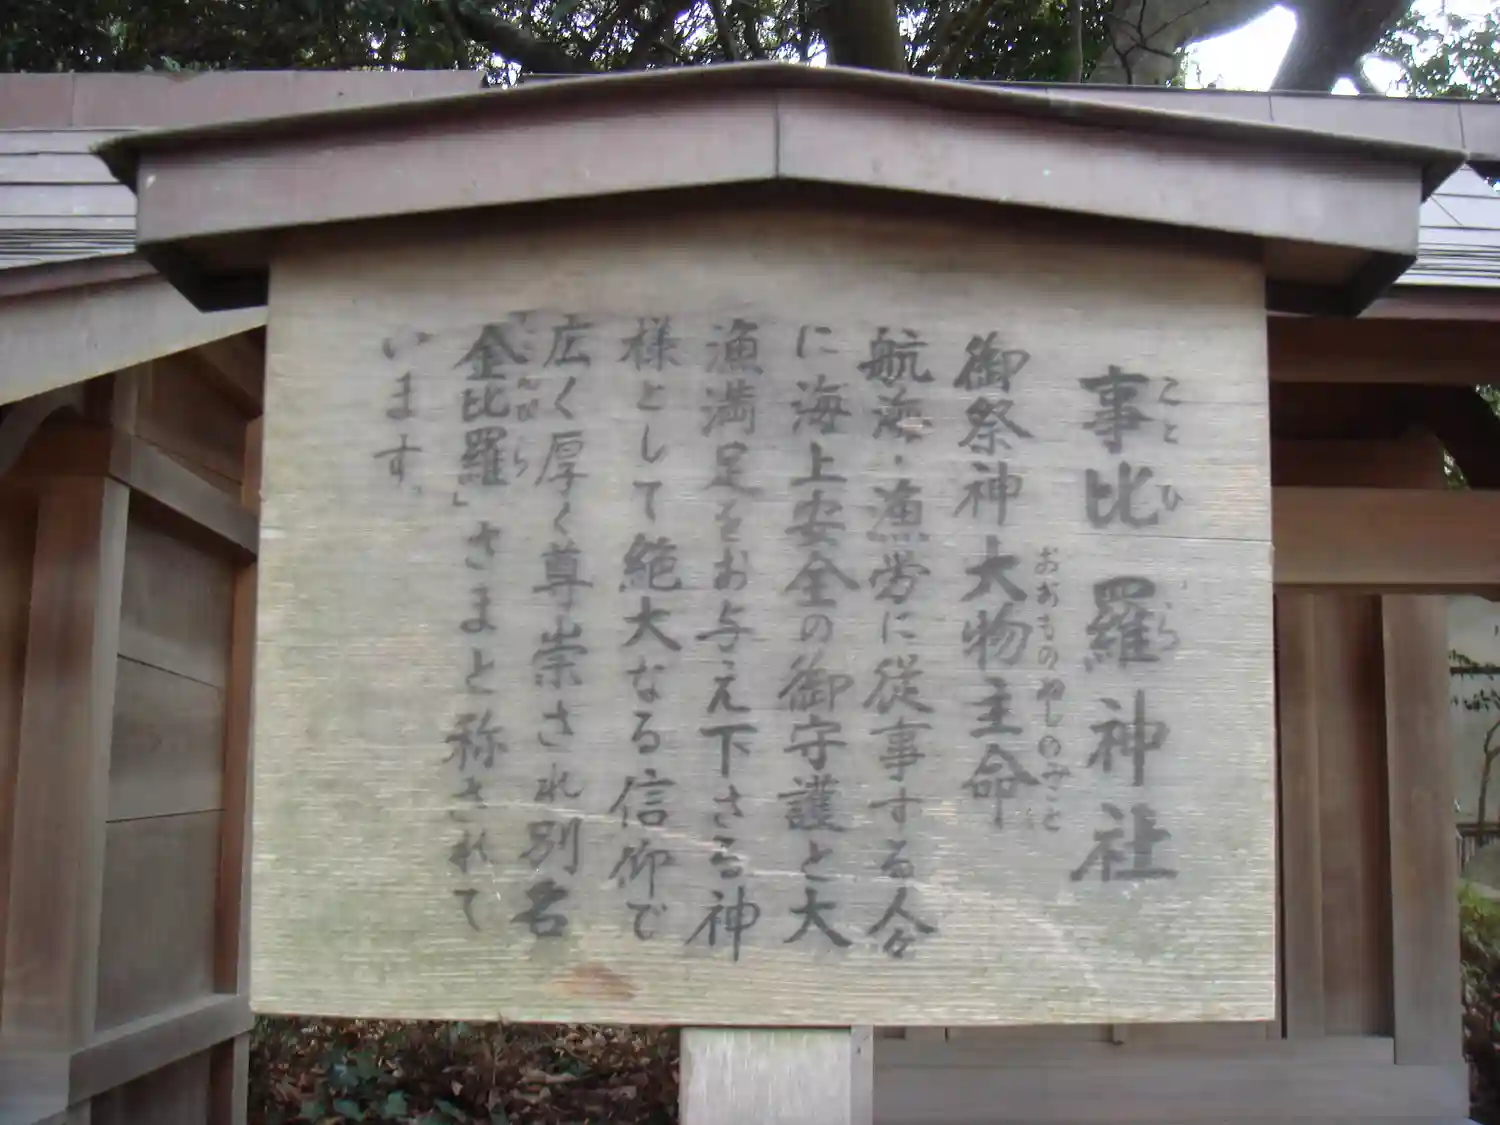 事比羅神社
ことひら
御祭神 大物主命
おおものぬしのみこと
航海・漁労に従事する人々
に海上安全の御守護と大
漁満足をお与え下さる神
様として絶大なる信仰で
広く厚く尊崇され別名
金比羅」さまと称されて
います。